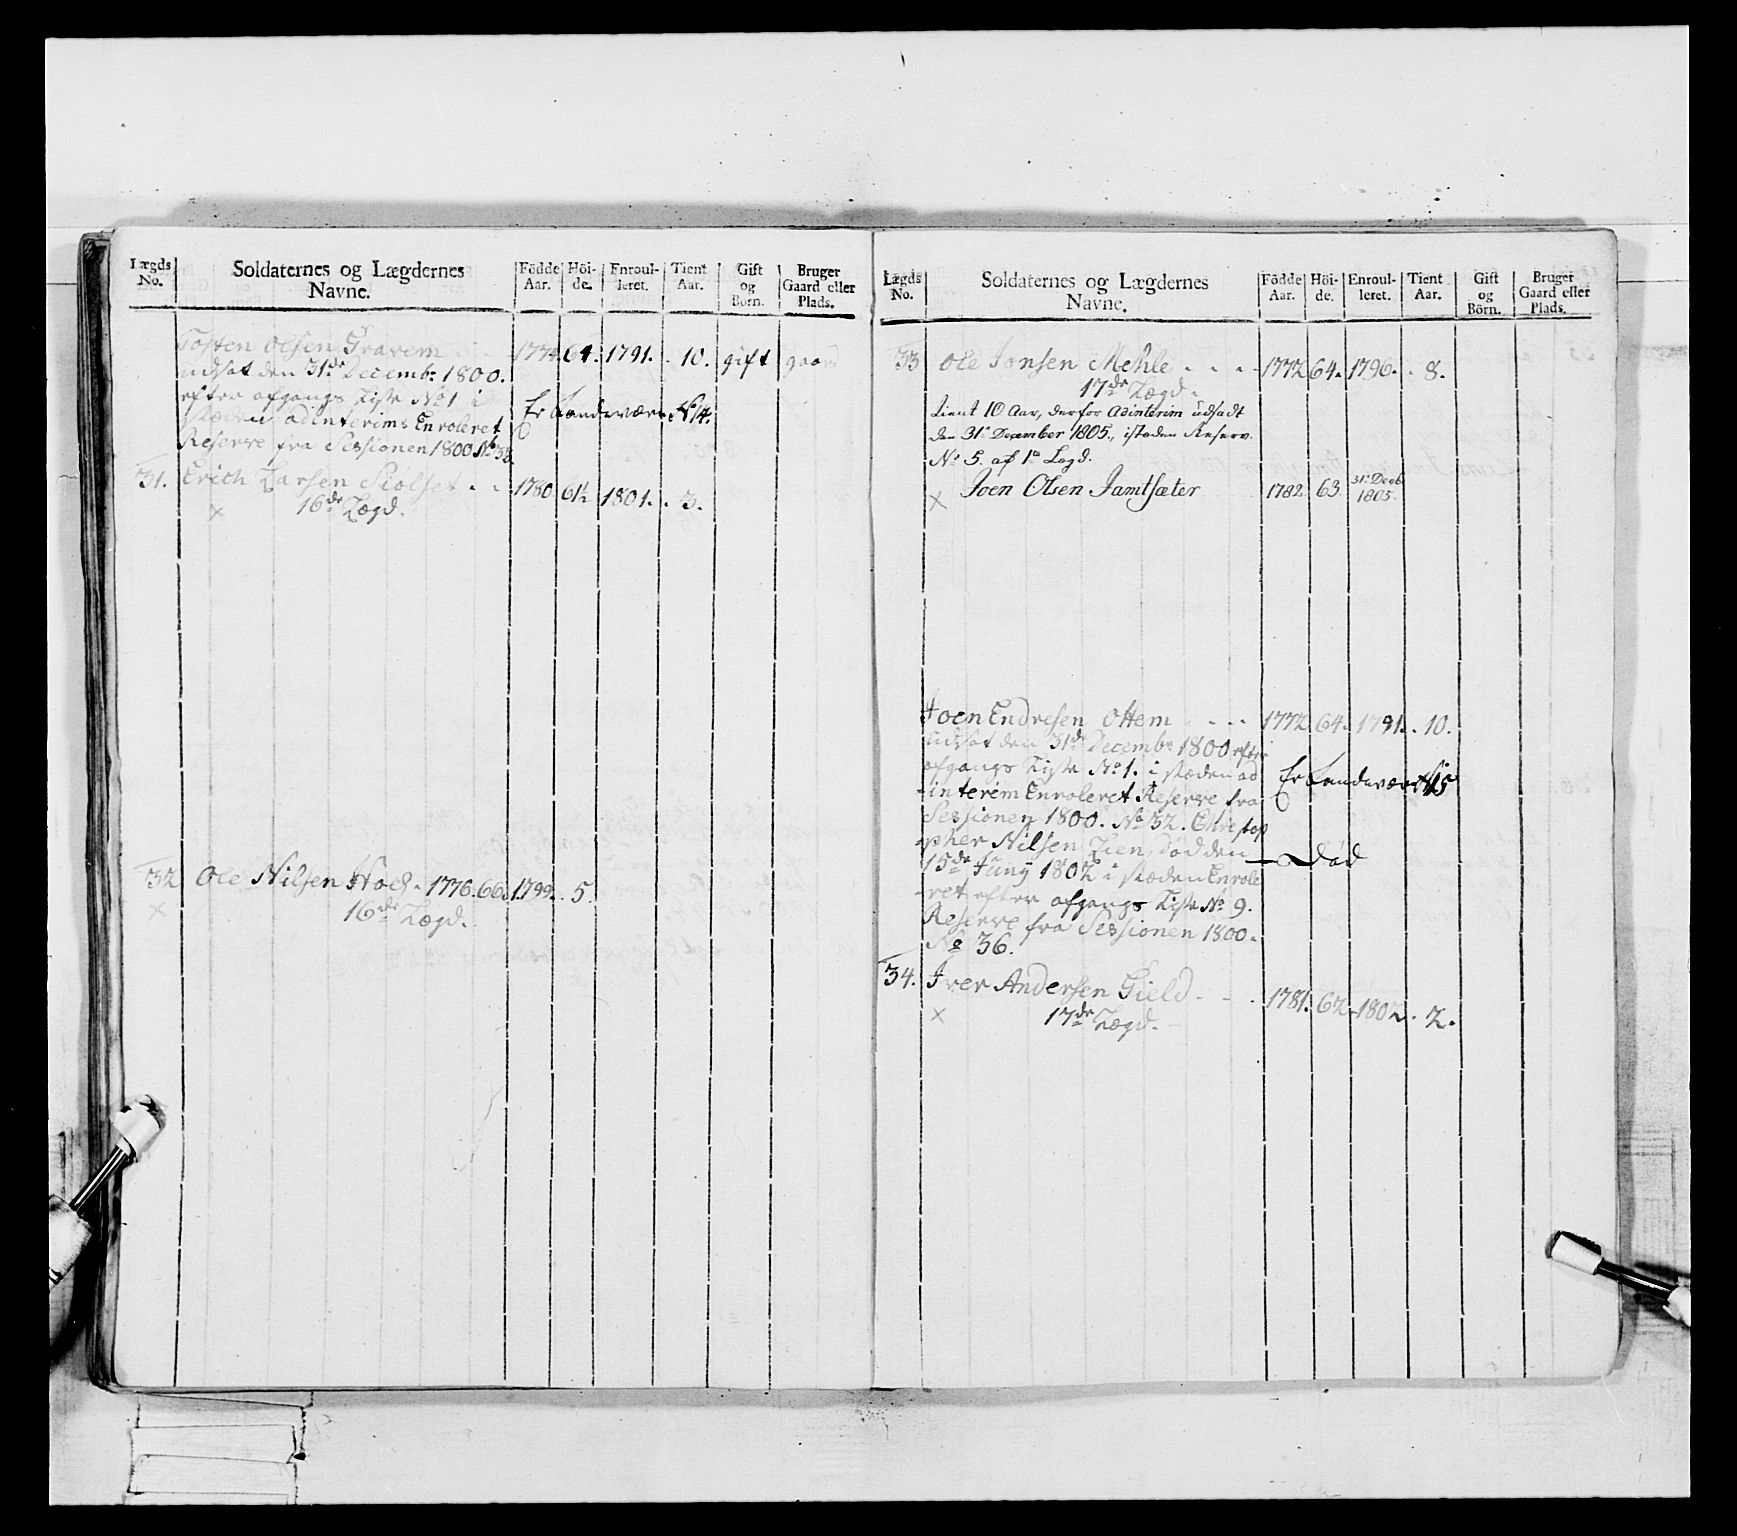 Lægds No. | Soldaternes og Lægdernes Navne. | Födde Aar. | Höi-de. | Enroul-leret. | Tient Aar. | Gift og Börn. | Bruger Gaard eller Plads.
Tosten Olsen Gravem | 1774 | 64. | 1791. | 10. | gift | gaard
udsat den 31de Decembr 1800.
efter afgangs Liste No 1 i
stæden adinterims Enroleret | Er Landeværn No 14.
Reserve fra Sessionen 1800 No 38.
31. Erich Larsen Skiölset | 1780 | 61½ | 1801. | 3.
× 16de Lægd.
32 Ole Nilsen Hoel | 1776. | 66. | 1799. | 5.
× 16de Lægd.
Lægds No. | Soldaternes og Lægdernes Navne. | Födde Aar. | Höi-de. | Enroul-leret. | Tient Aar. | Gift og Börn. | Bruger Gaard eller Plads.
33 Ole Jonsen Mehle | 1772 | 64. | 1796. | 8.
17de Lægd.
tient 10 Aar, derfor adinterim udsadt
den 31te December 1805., istæden Reserv.
No 5. af 1te Lægd.
× Joen Olsen Jamtsæter | 1782 | 63 | 31te Decb. 1805.
Joen Endresen Ottem | 1772 | 64. | 1791. | 10.
udsat den 31de Decembr 1800 efter
afgangs Liste No 1. i stæden ad
interim Enroleret Reserve fra | Er Landeværn No 15
Sessionen 1800. No 32. Christop
pher Nilsen Lien, död den
15de Juny 1802 i stæden Enrole | — Död
ret efter afgangs Liste No 9.
Reserve fra Sessionen 1800.
No 36.
34. Iver Andersen Gield | 1781. | 62 | 1802. | 2.
× 17de Lægd.